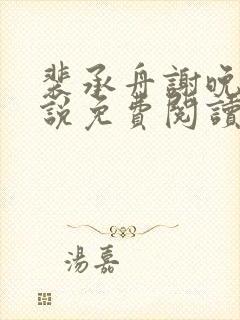 裴承舟謝晚
說免費閱讀
湯嘉